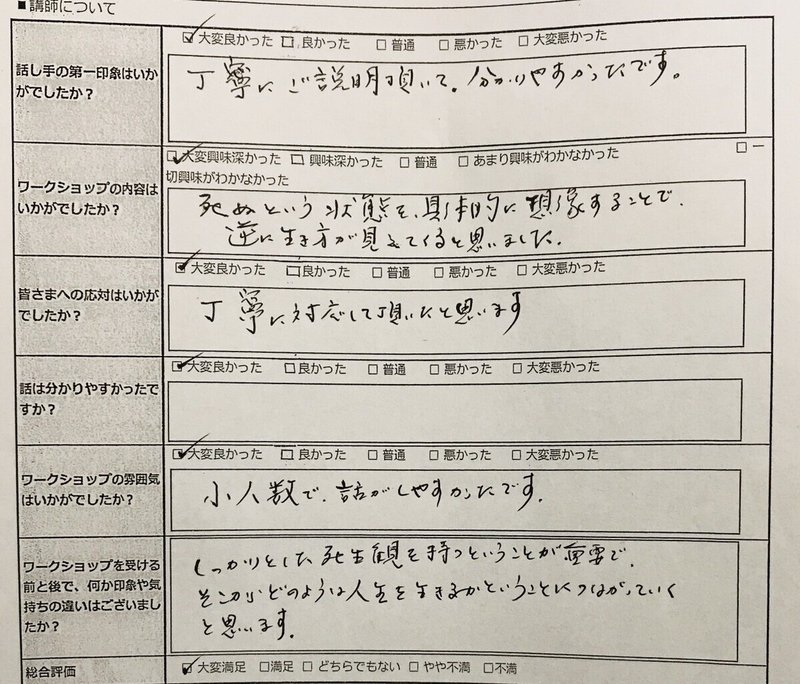 ■講師について
話し手の第一印象はいか
がでしたか？
☑大変良かった □良かった □普通 □悪かった □大変悪かった
丁寧にご説明頂いて、分かりやすかったです。
ワークショップの内容は
いかがでしたか？
☑大変興味深かった □興味深かった □普通 □あまり興味がわかなかった □一
切興味がわかなかった
死ぬという状態を、具体的に想像することで、
逆に生き方が見えてくると思いました。
皆さまへの応対はいかが
でしたか？
☑大変良かった □良かった □普通 □悪かった □大変悪かった
丁寧に対応して頂いたと思います
話は分かりやすかったで
すか？
☑大変良かった □良かった □普通 □悪かった □大変悪かった
ワークショップの雰囲気
はいかがでしたか？
☑大変良かった □良かった □普通 □悪かった □大変悪かった
小人数で、話がしやすかったです。
ワークショップを受ける
前と後で、何か印象や気
持ちの違いはございまし
たか？
しっかりとした死生観を持つということが重要で、
そこからどのような人生を生きるかということにつながっていく
と思います。
総合評価
☑大変満足 □満足 □どちらでもない □やや不満 □不満